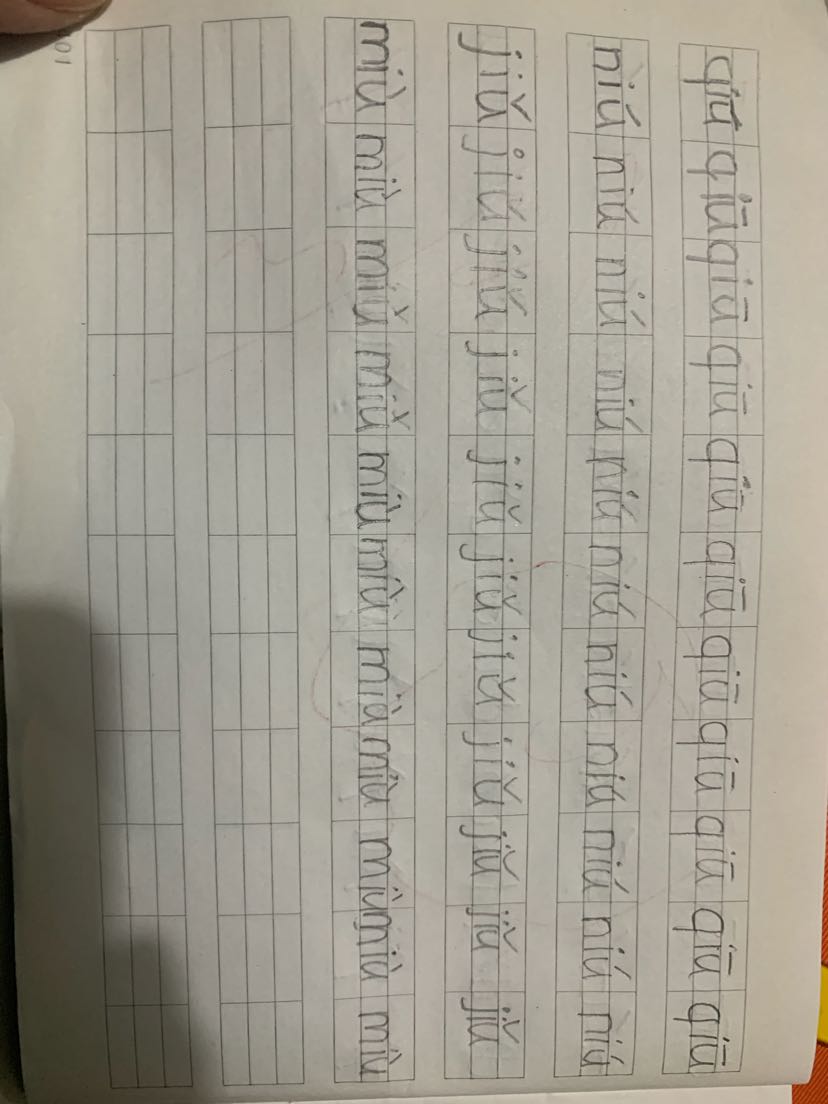 qiū qiū qiū qiū qiū qiū qiū qiū qiū qiū qiū
niú niú niú niú niú niú niú niú niú niú niú
jiǔ jiú jiú jiǔ jiǔ jiǔ jiǔ jiǔ jiǔ jiǔ jiǔ
miù miù miǔ miǔ miù miù miù miù miù miù miù